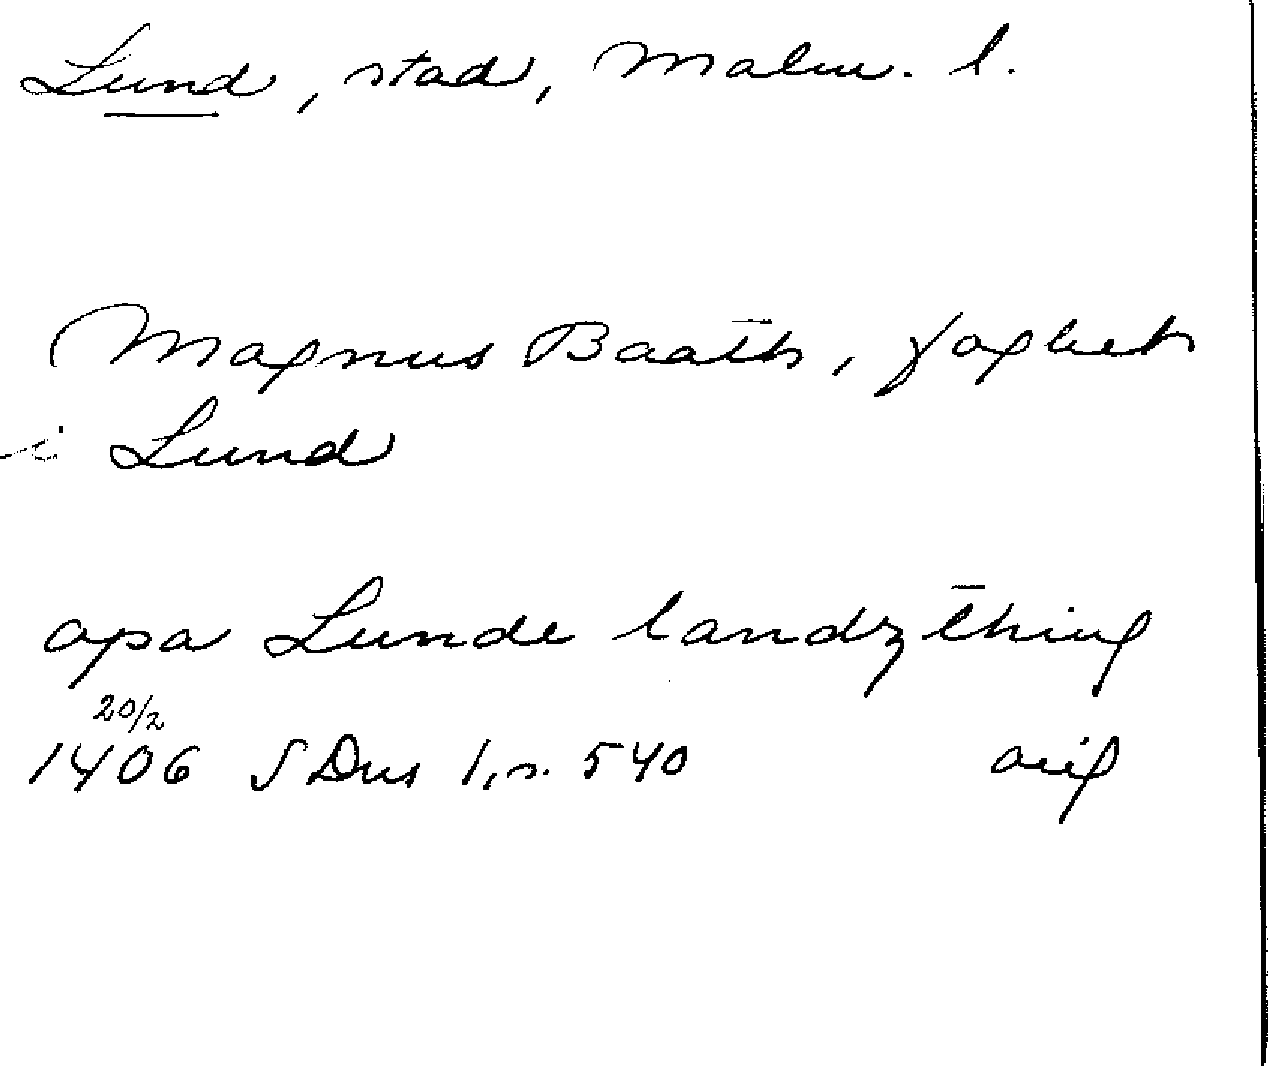 Lund, stad, Malm. l.
Magnus Baath, foghet
i Lund
opa Lunde landzthing
20/2
1406 SDns 1, s. 540 orig